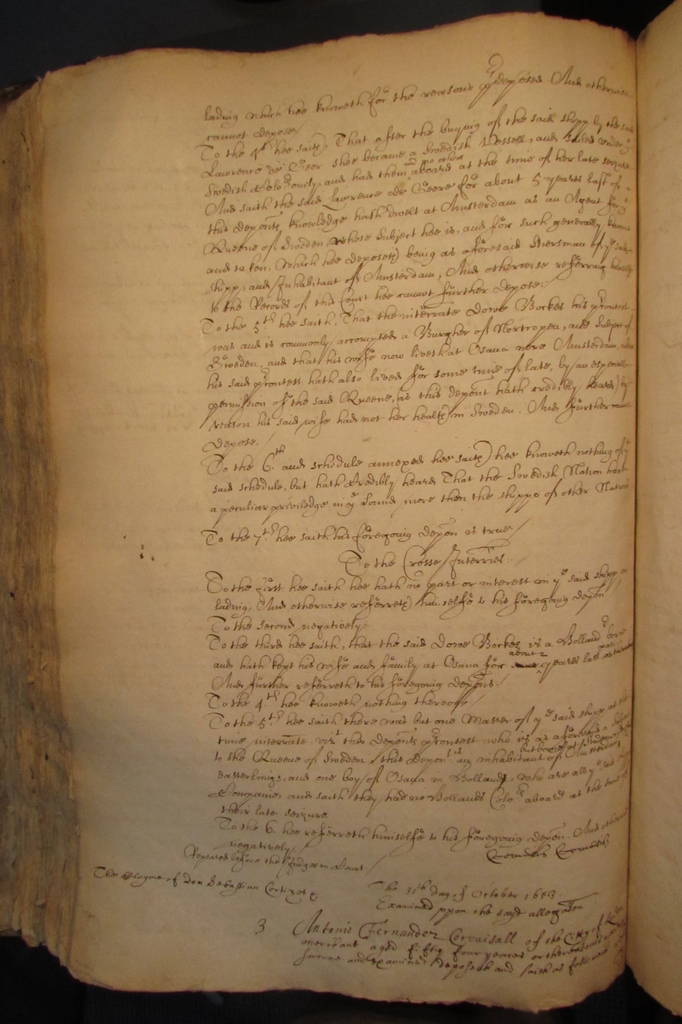 lading which hee knoweth for the reasons predeposed And otherwise
cannot depose
To the 4th hee saith That after the buying of the said shipp by the said
Lawrence de Geer she became a Swedish Vessell, and sailed under
Swedish Colo onely, and had them aboard at the time of her late seizure
And saith the said Lawrence de Geere for about 5 yeares last of
this deponts knowledge hath dwelt at Amsterdam as an Agent for
Queene of Sweden whose subject hee is, and for such generally knowne
and taken, which hee deposeth being as aforesaid Steersman of ye said
shipp, and Inhabitant of Amsterdam, And otherwise referring himselfe
to the Records of this Court hee cannot further depose.
To the 5th hee saith, That the interrate Dowe Bockes his precontest
was and is commonly accompted a Burgher of Nortcopen, and subject of
Sweden, and that his wife now liveth at neere Amsterdam, where
his said precontest hath also lived for some time of late, by an especiall
permission of the said Queene, as this deponent hath credibly heard, by
reason his said wife had not her health in Sweden. And further cannot
depose.
To the 6th and schedule annexed hee saith hee knoweth nothing of ye
said schedule, but hath credibly heard That the Swedish Nation have
a peculiar priviledge in ye Sound more then the shipps of other Nations
To the 7th hee saith his foregoeing depon is true
To the Crosse Interries.
To the first hee saith hee hath no part or interest in ye said shipp or
lading, And otherwise referreth himselfe to his foregoing depon
To the second negatively.
To the third hee saith, that the said Dowe Bockes is a Hollander borne
and hath kept his wife and family at for about 2 yeares last
And further referreth to his foregoing depons.
To the 4th hee knoweth nothing thereof
To the 5th hee saith there was but one Master of ye said shipp at the
time interrate, vizt this Deponts precontest who is as aforesaid a subject
to the Queene of Sweden this Deponent is an inhabitant of Amsterdam
Easterlings, and one boy of in Holland, who are all ye
Companie, and saith they had no Hollands Colo aboard at the time of
their late seizure
To the 6. hee referreth himselfe to his foregoing depon. And otherwise
negatively
Repeated before the Judges in Court.
The clayme of Don Sebastian
The 11th day of October 1653.
Examined upon the sayd allegation
3
Antonio Fernandez Carvaiall of the City of
merchant aged fifty four yeares or thereabouts
sworne and examined deposeth and saith as followeth